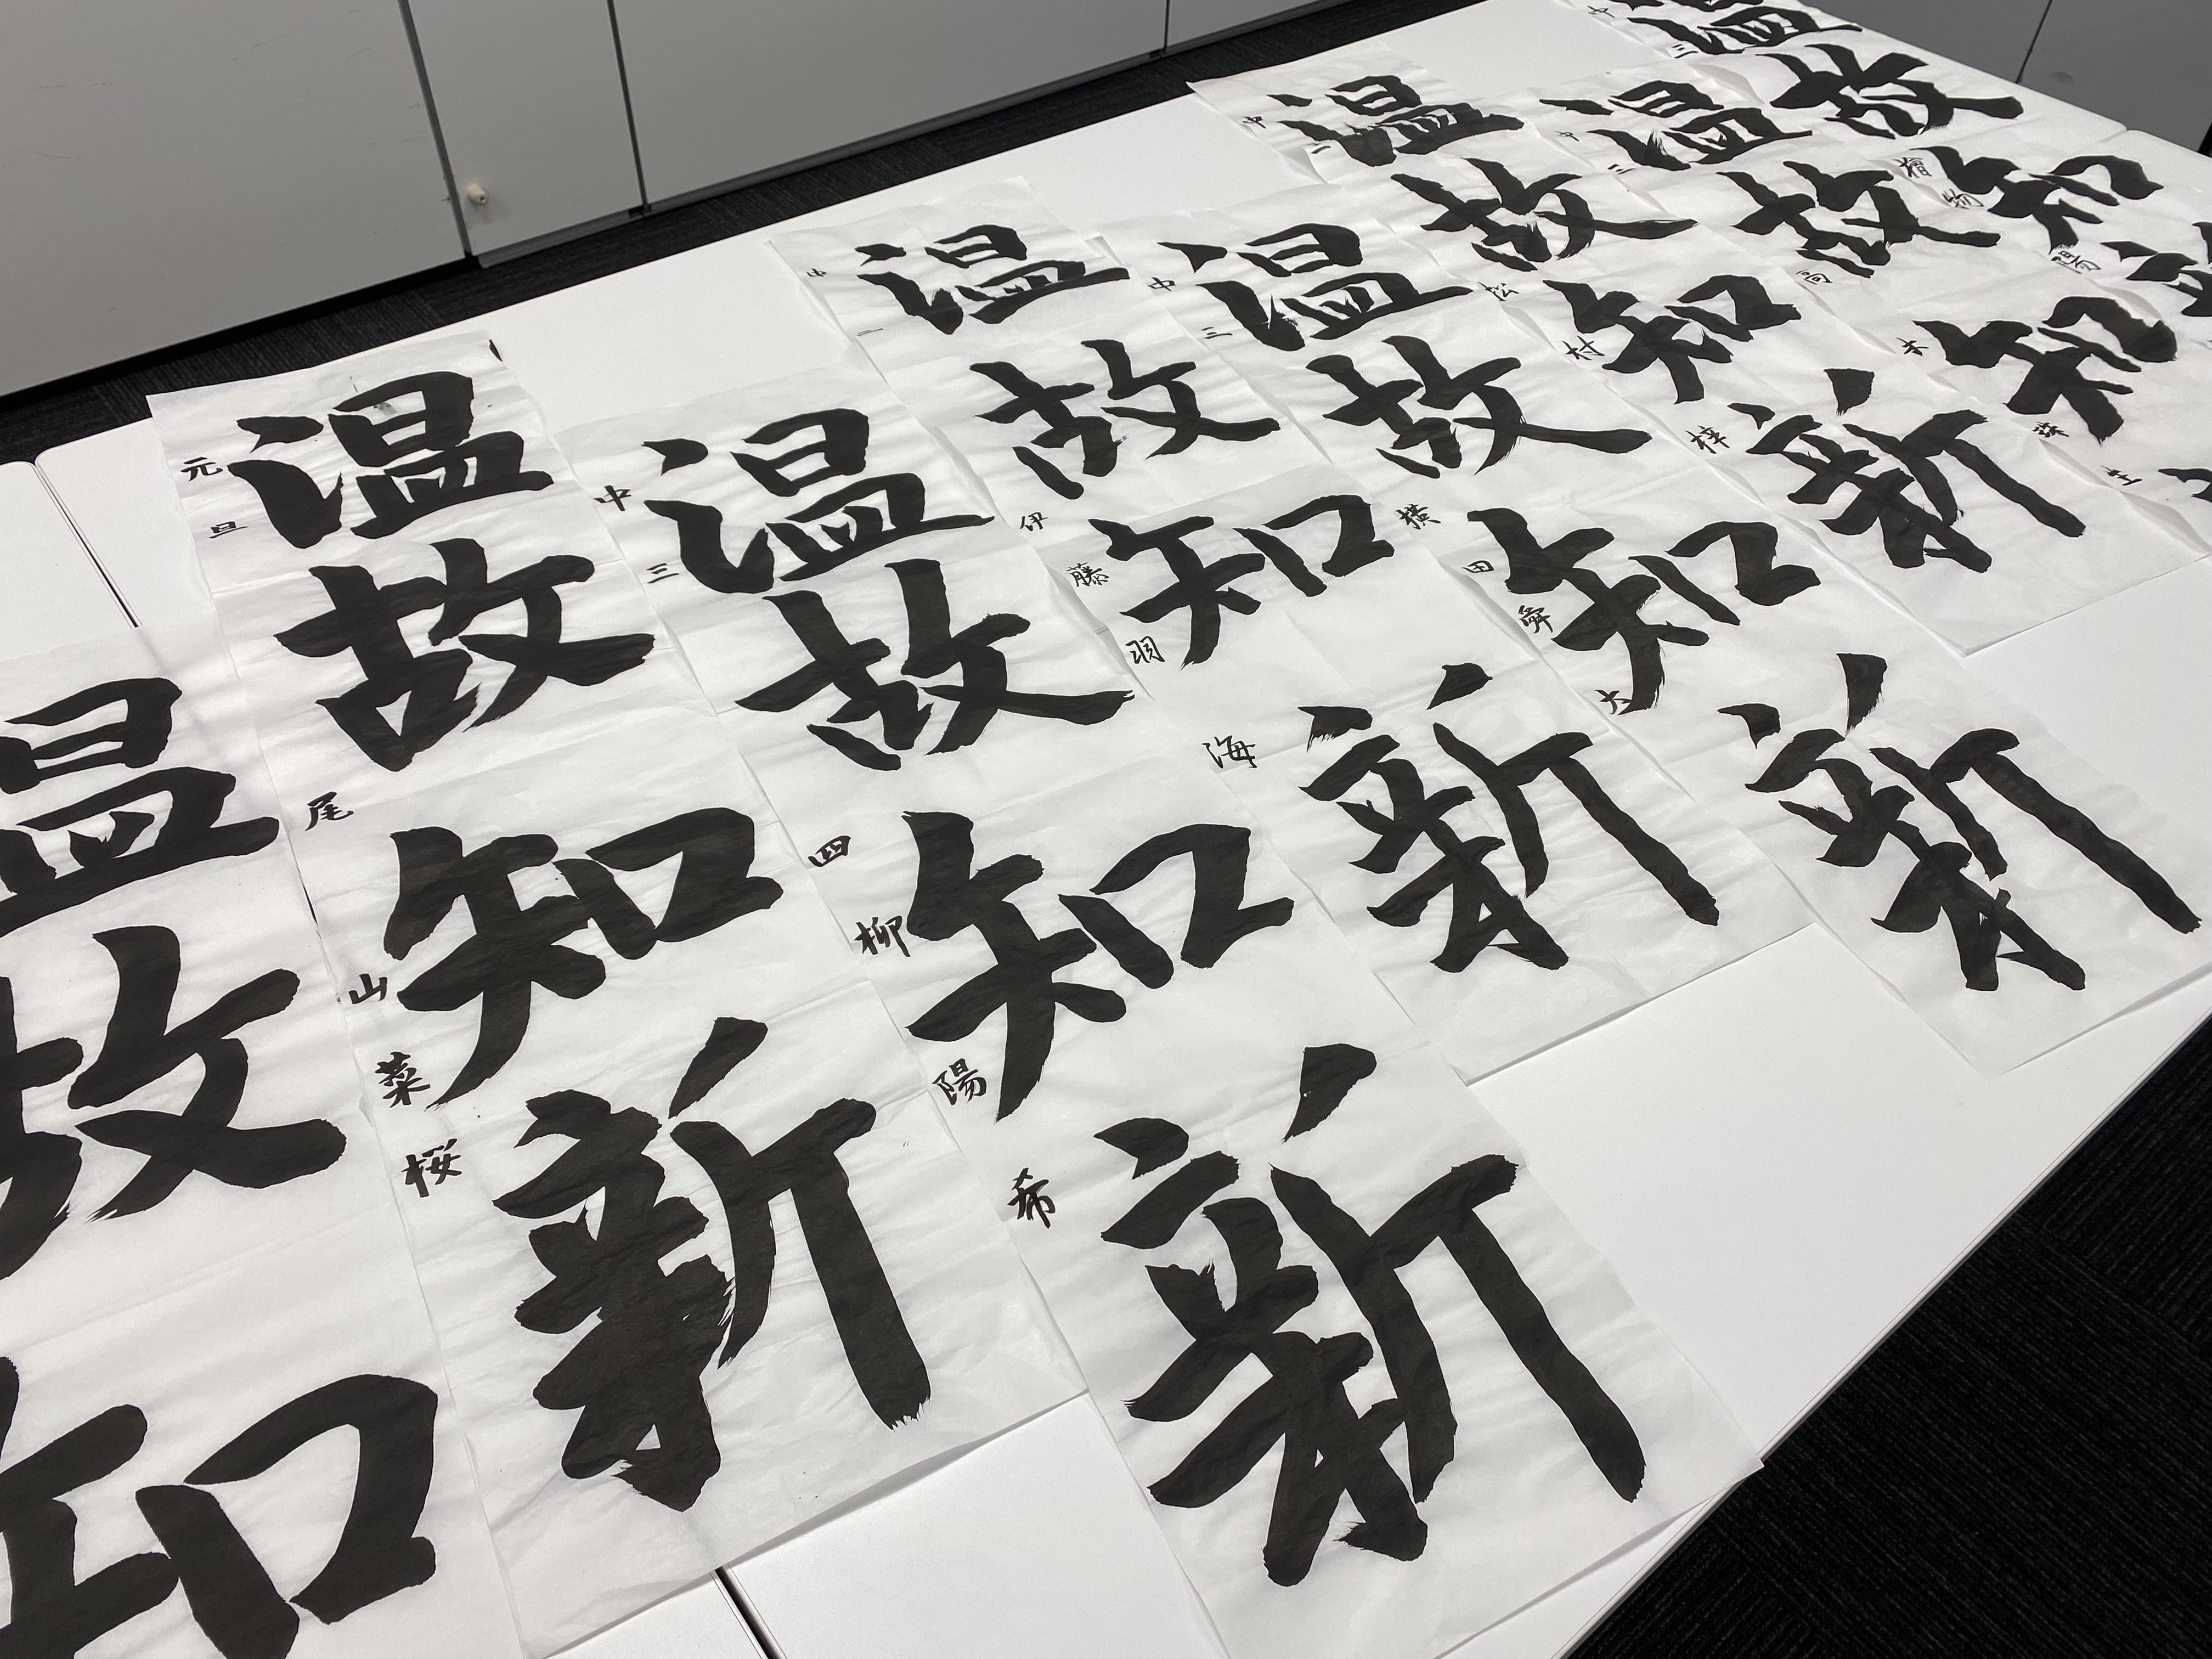 温故知
温故知新
元旦 尾山菜桜
温故知新
中三 四柳陽希
温故知新
中二 伊藤羽海
温故知新
中三 横田舜大
温故知新
中一 松村梓
温故知
中三 高
温故知
中三 檜物陽